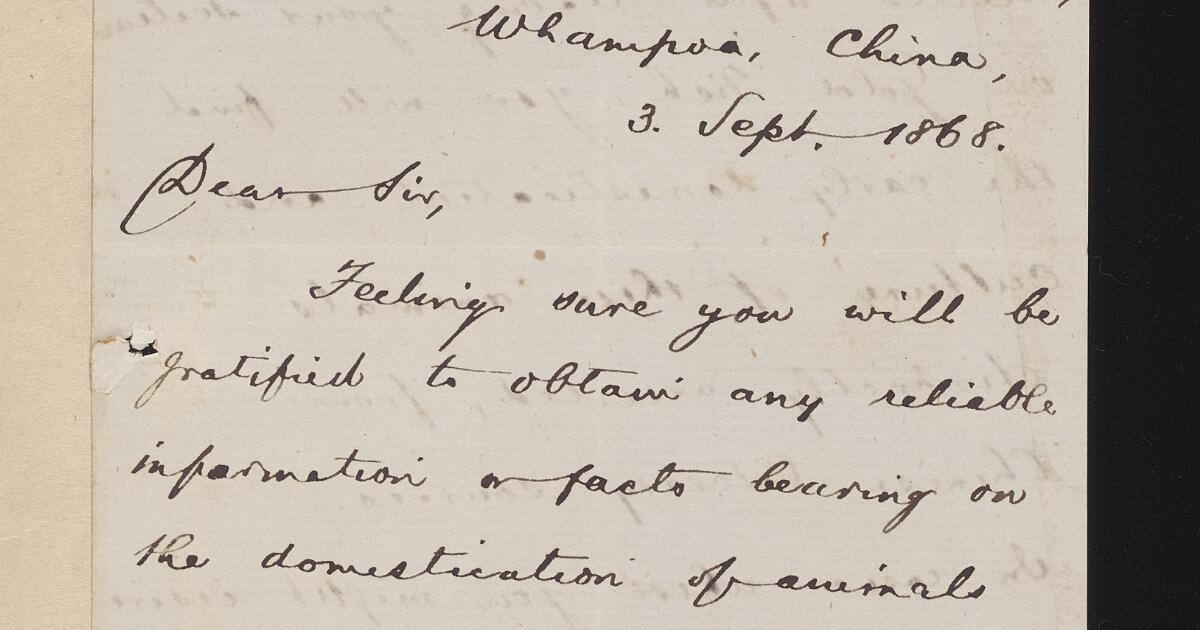 Whampoa, China,
3. Sept. 1868.
Dear Sir,
Feeling sure you will be
gratified to obtain any reliable
information or facts bearing on
the domestication of animals